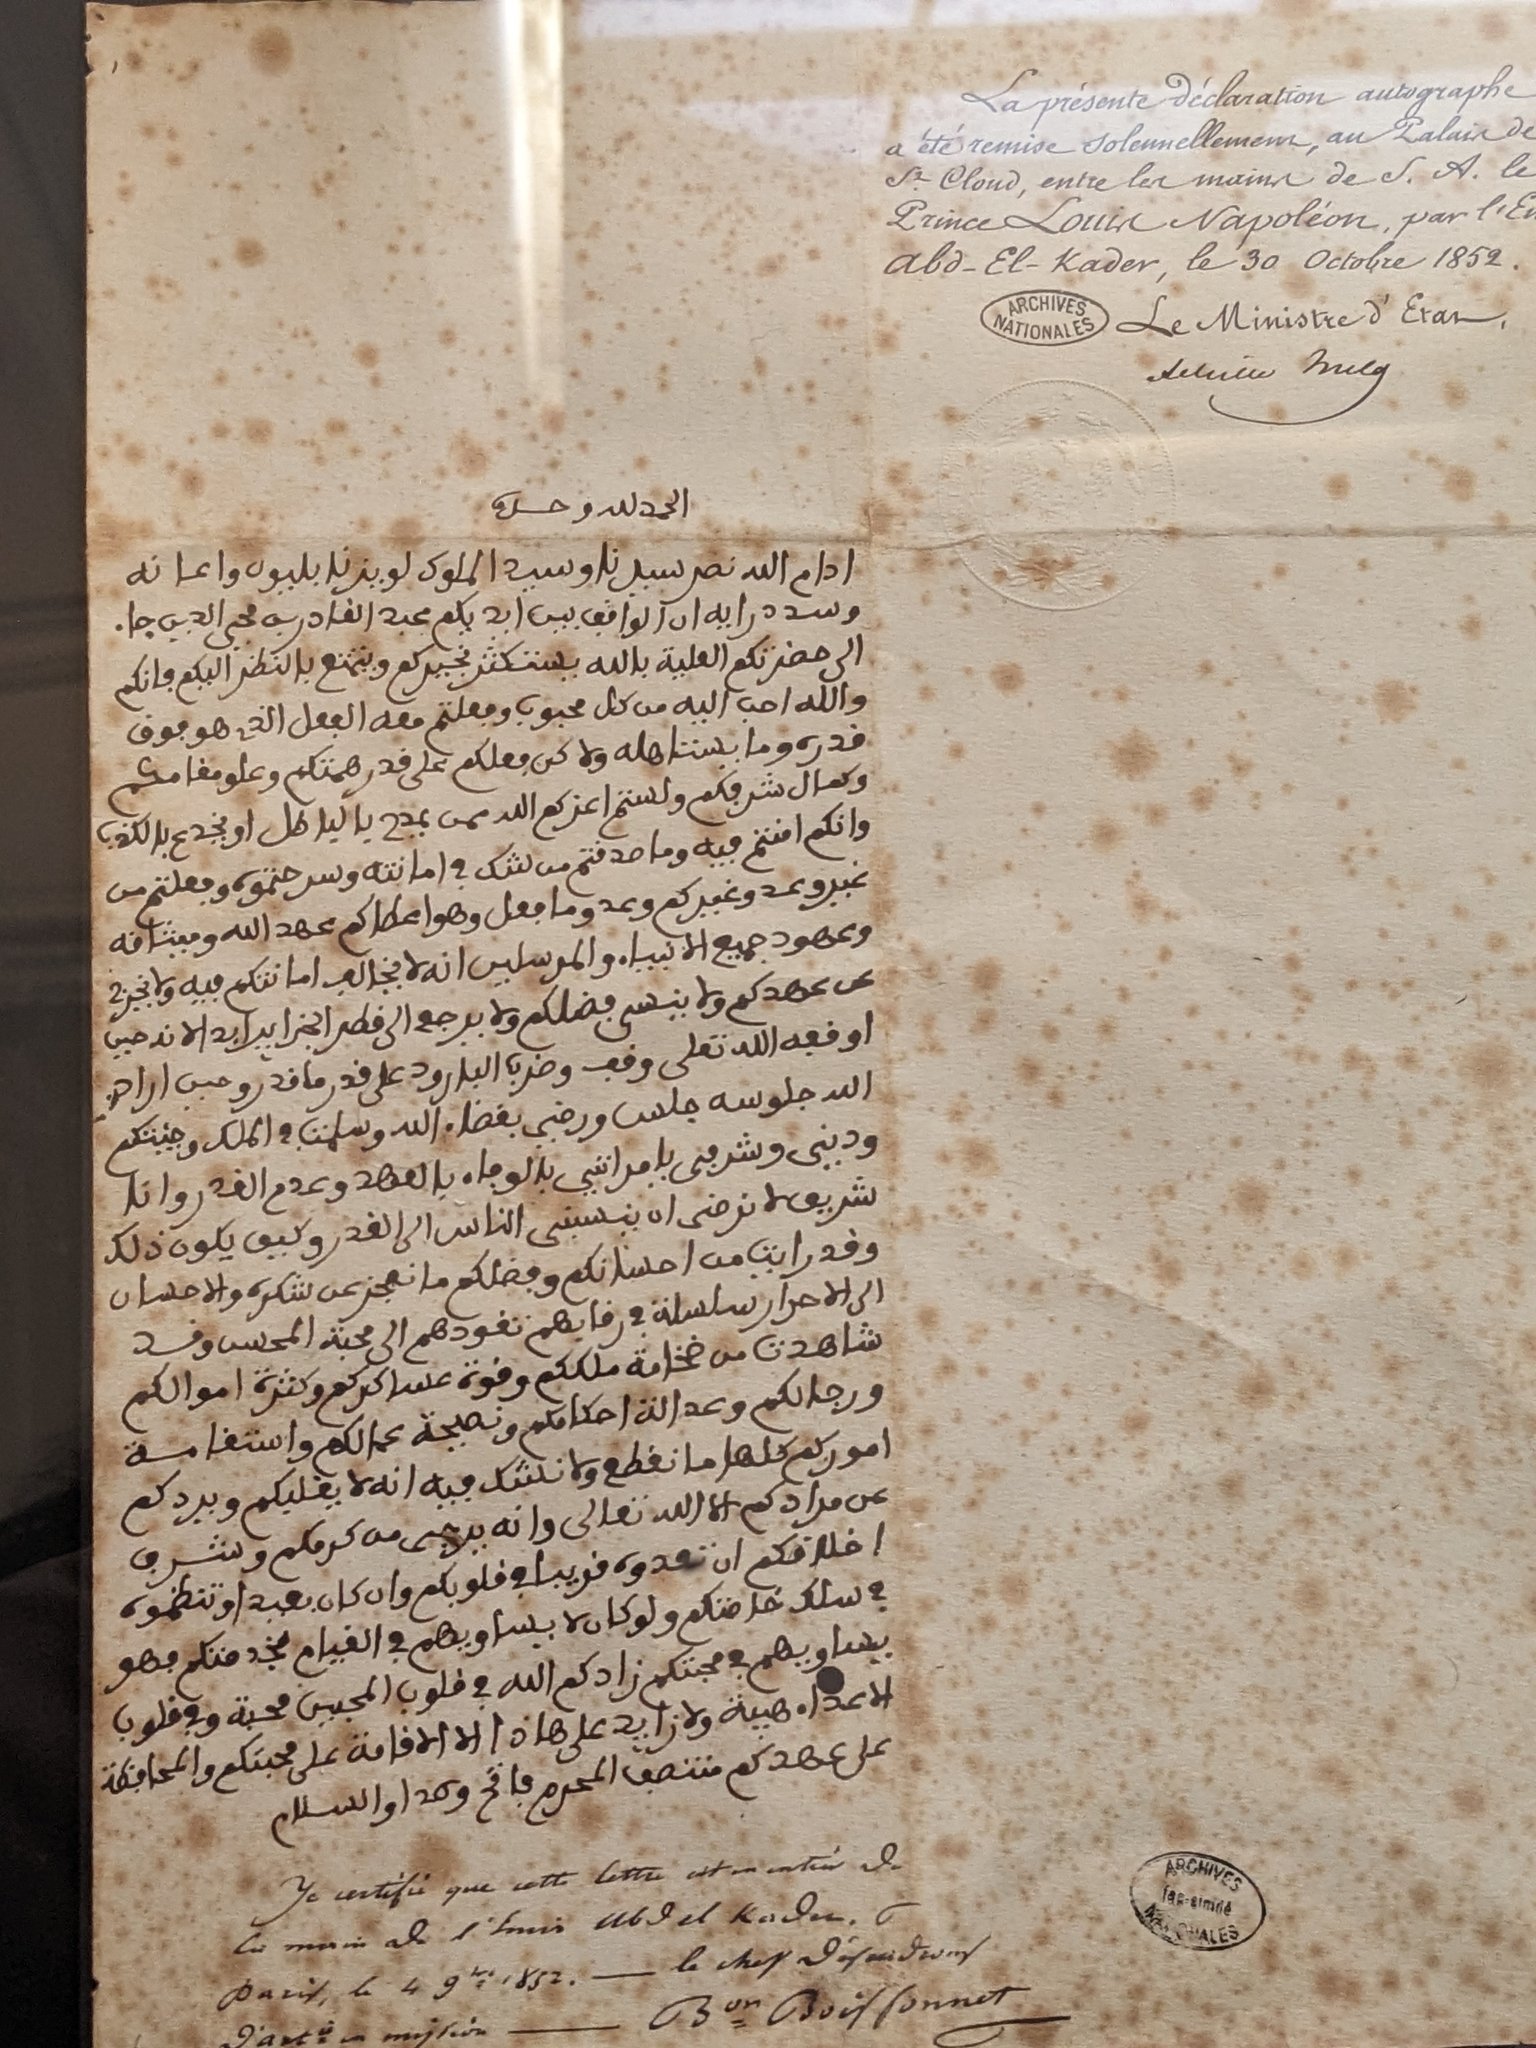 La présente déclaration autographe
a été remise solennellement, au Palais de
St Cloud, entre les mains de S. A. le
Prince Louis Napoléon, par l'Em
Abd-El-Kader, le 30 Octobre 1852.
ARCHIVES NATIONALES
Le Ministre d'Etat,
الحمد لله وحده
ادام الله نصر سيدنا وسيد الملوك لويز نابليون واعانه
وسدد رايه ان الواقف بين ايديكم عبد القادر بن محي الدين جاء
الى حضرتكم العلية بالله يستكثر بخيركم ويتمتع بالنظر اليكم فانكم
والله احب اليه من كل محبوب وفعلتم معه الفعل الذي هو فوق
قدره وما يستاهله ولاكن فعلكم على قدر همتكم وعلو مقامكم
وكمال شرفكم ولستم اعزكم الله ممن يمدح بالباطل او يخدع بالكذب
وانكم امنتم فيه وما صدقتم من شك في امانته وسرحتموه وفعلتم من
غير وعد وغيركم وعد وما فعل وهو اعطاكم عهد الله وميثاقه
وعهود جميع الانبياء والمرسلين انه لا يخالف امانتكم فيه ولا يخرج
عن عهدكم ولا ينسى فضلكم ولا يرجع الى قطر الجزاير ابدا لانه حين
اوقفه الله تعلى وقف وضرب البارود على قدر ما قدر وحين اراد
الله جلوسه جلس ورضي بقضاء الله وسلمت في الملك وجيتكم
وديني وشرفي يامرانني بالوفاء بالعهد وعدم الغدر وانا
شريف لا نرضى ان ينسبني الناس الى الغدر وكيف يكون ذلك
وقد رايت من احسانكم وفضلكم ما نعجز عن شكره والاحسان
الى الاحرار سلسلة في رقابهم تقودهم الى محبة المحسن وقد
شاهدت من ضخامة ملككم وقوة عساكركم وكثرة اموالكم
ورجالكم وعدالة احكامكم ونصيحة عمالكم واستقامة
اموركم كلها ما نقطع ولا نشك فيه انه لا يغلبكم ويردكم
عن مرادكم الا الله تعالى وانه يرجى من كرمكم وشرف
اخلاقكم ان تعدوه قريبا في قلوبكم وان كان بعيدا وتنظموه
في سلك خاصتكم ولو كان لا يساويهم في القيام بخدمتكم فهو
يساويهم في محبتكم زادكم الله في قلوب المحبين محبة وفي قلوب
الاعداء هيبة ولا زايد على هاذا الا الاقامة على محبتكم والمحافظة
على عهدكم منتصف المحرم فاتح والسلام
Je certifie que cette lettre est en entier de
la main de l'Emir Abd el Kader.
Paris, le 4 9bre 1852. — le chef d'escadrons
d'artie en mission — Bon Boissonnet
ARCHIVES fac-similé NATIONALES